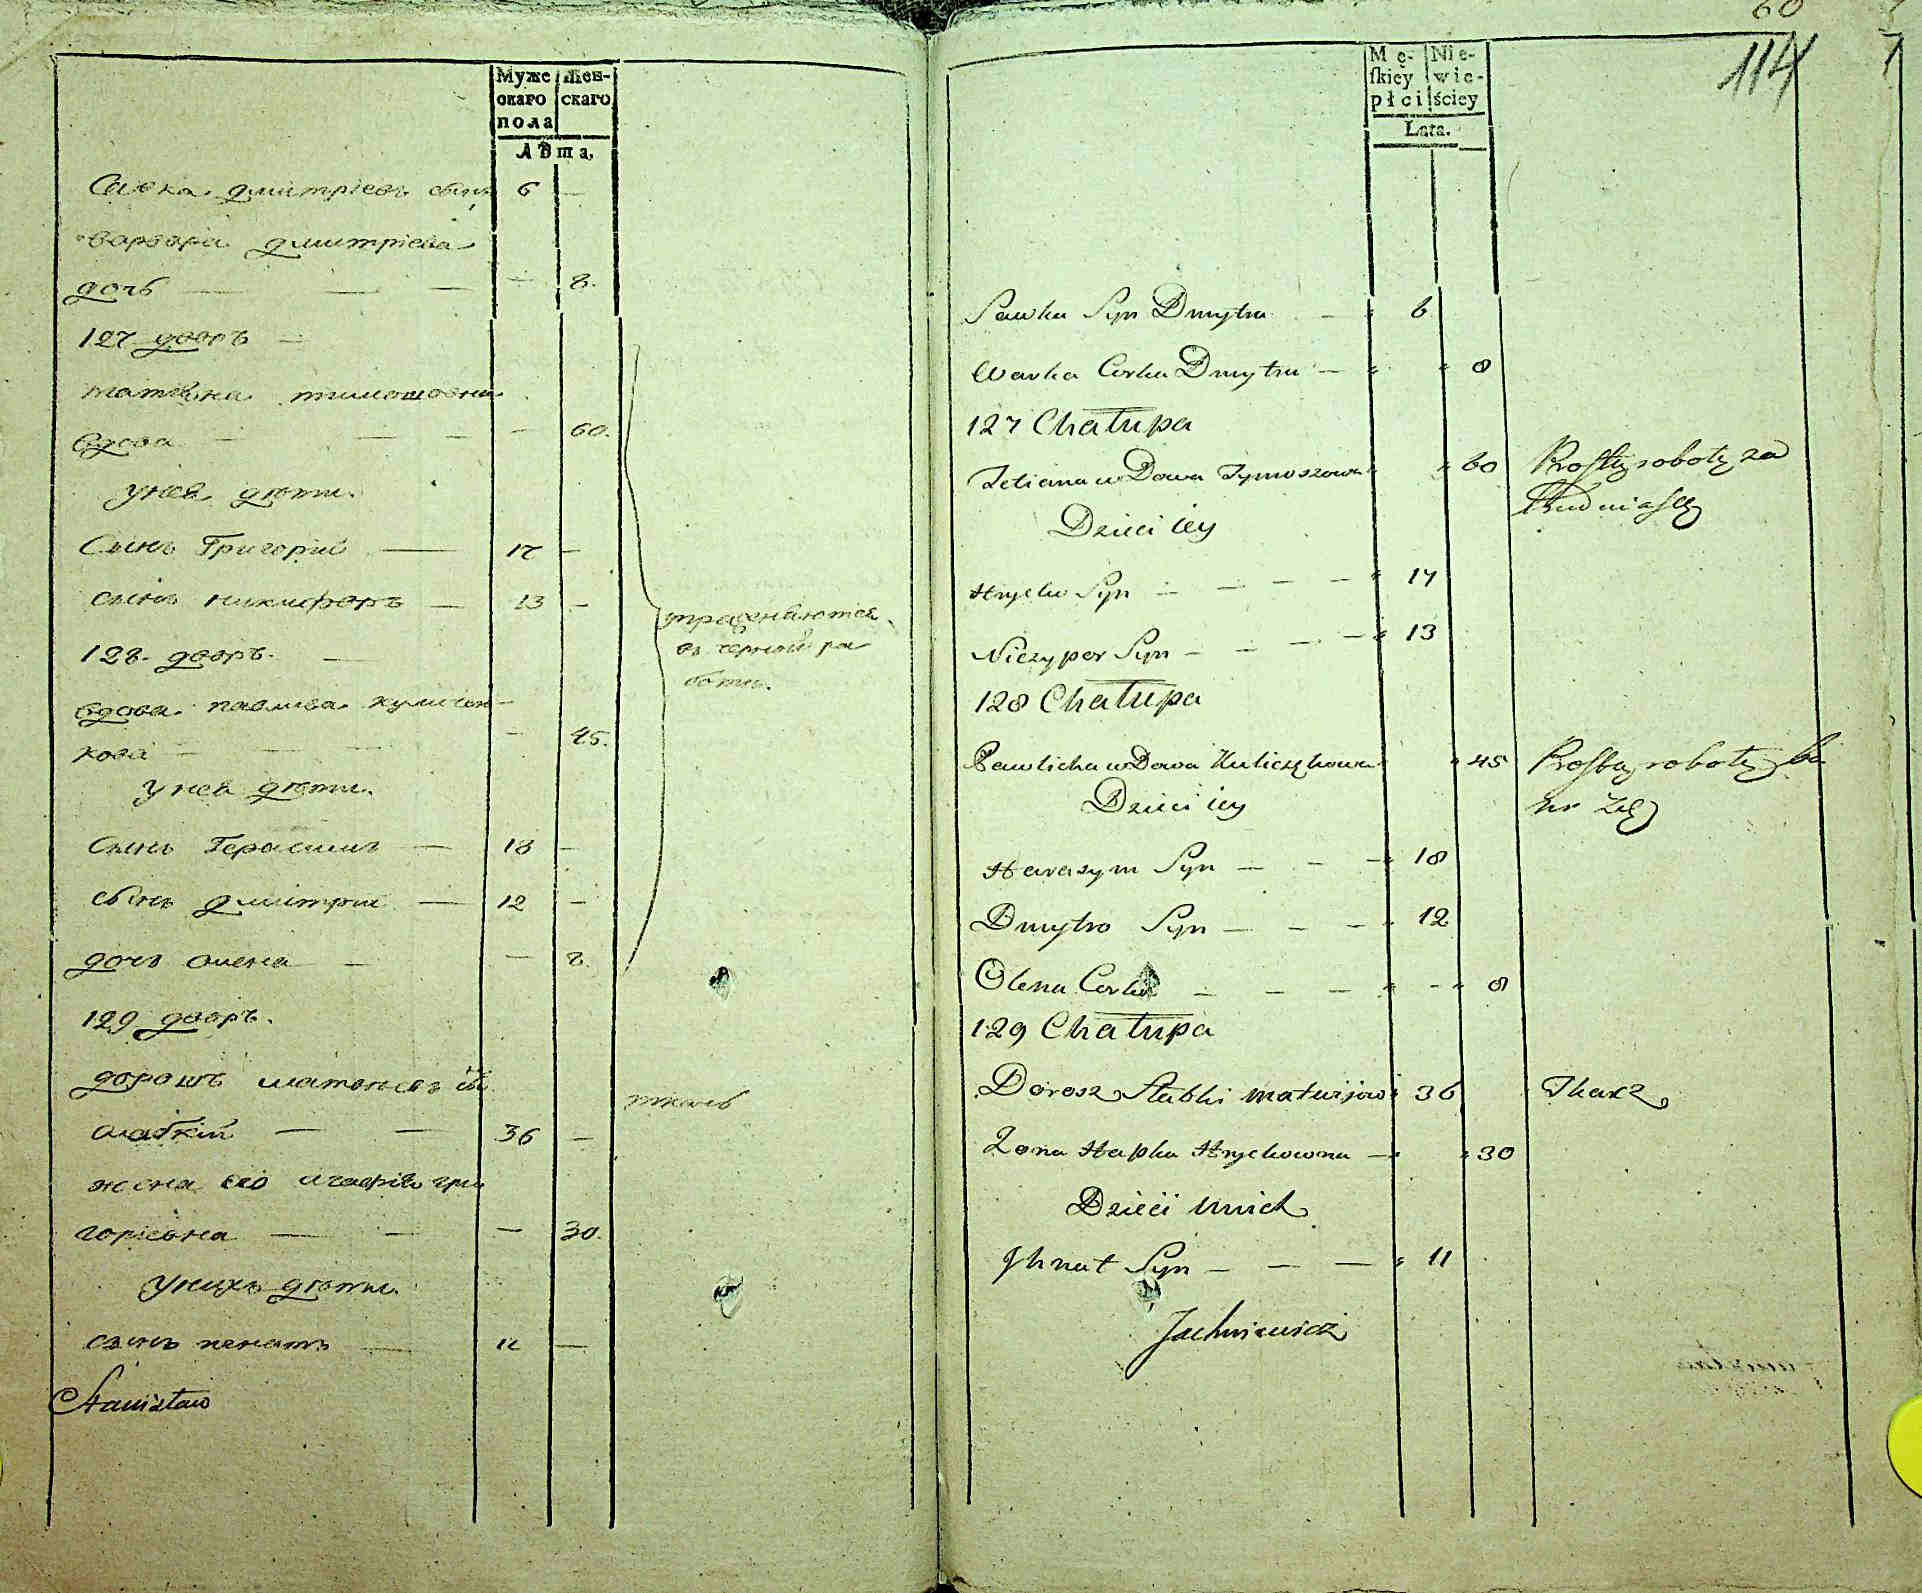 Муже Жен-
скаго скаго
пола
Лѣта,
Савка дмитрiевъ сынъ 6 —
варвара дмитрiева
дочь — — — — 8.
127 дворъ —
татяна тимошовна
вдова — — — — 60.
унея дѣти.
Сынъ Григорiй — 17 —
сынъ никифоръ — 13 —
128. дворъ. —
вдова павлиха куличен-
кова — — — — 45.
унея дѣти.
Сынъ Герасимъ — 18 —
сынъ дмитрiй — 12 —
дочь олена — — 8.
упражняются
въ черной ра
боти.
129 дворъ.
дорошъ матвѣевъ
слабкiй — — 36 —
ткачь
жена его агафiя гри
горiевна — — — 30.
унихъ дѣти.
сынъ игнатъ — 11 —
Stanisław
60
114
Mę- Nie-
skiey wie-
płci ściey
Lata.
Sawka Syn Dmytra — 6
Warka Corka Dmytra — 8
127 Chałupa
Tetiana wDowa Tymoszowa 60 Prostą robotą za
Dzieci iey
Hryćko Syn — — — — 17
Niczypor Syn — — — — 13
128 Chałupa
Pawlicha wDowa Kuliczękowa 45 Prostą robotą ba
Dzieci iey
Harasym Syn — — — 18
Dmytro Syn — — — 12
Olena Corka — — — — 8
129 Chałupa
Dorosz Słabki matwijow 36 Tkacz
Żona Hapka Hryckowna — 30
Dzieci unich
Jhnat Syn — — — 11
Jachniewicz